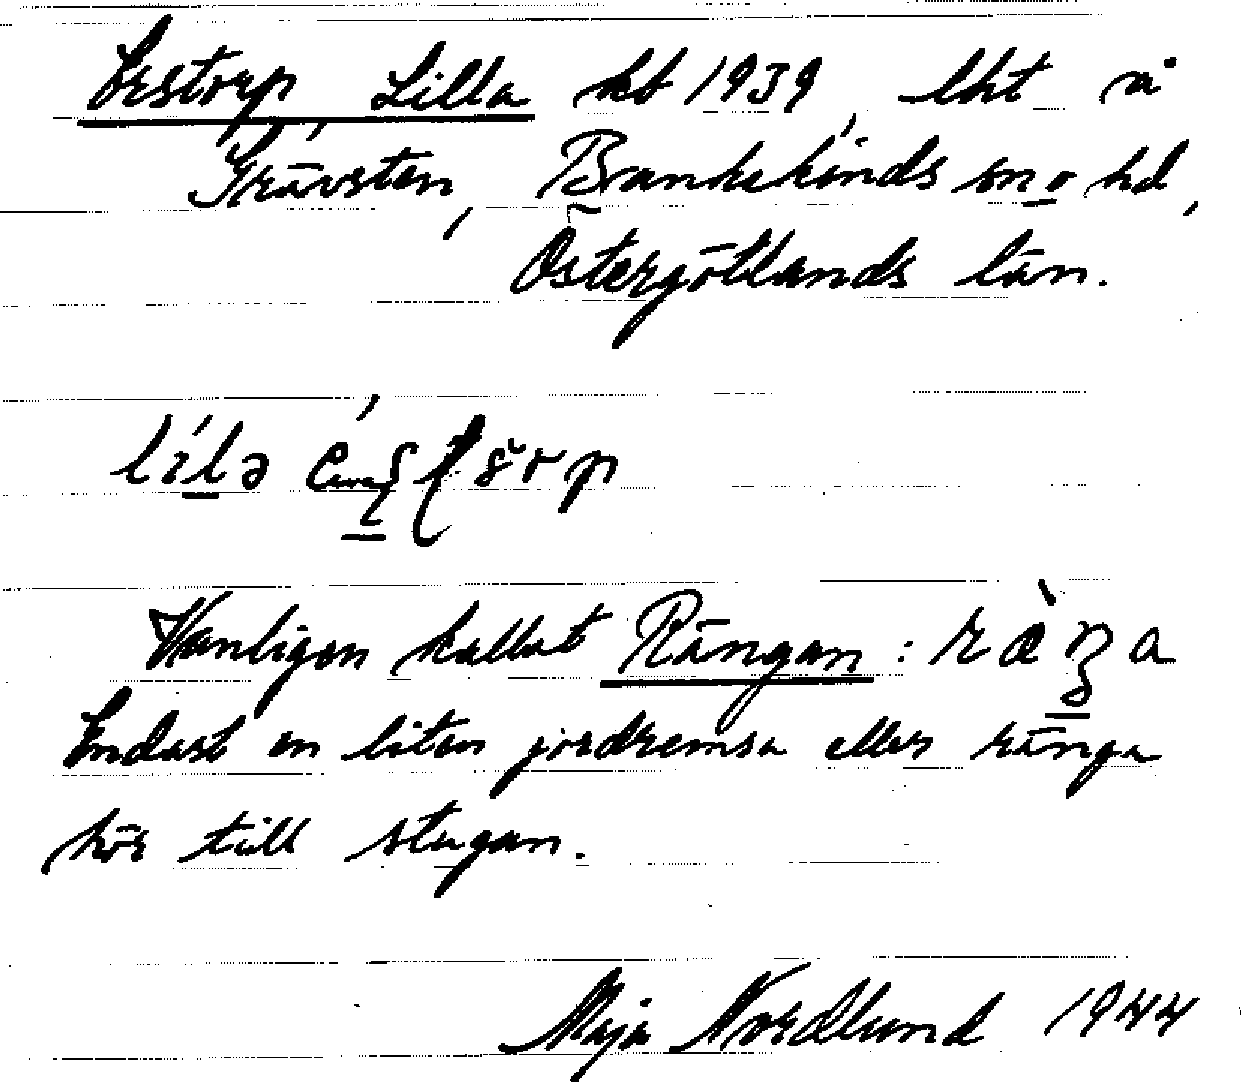 Lestorp, Lilla kb 1939, lht å
Grävsten, Bankekinds sn o hd,
Östergötlands län.
Vanligen kallat Rängan : ræ̀ŋa
Endast en liten jordremsa eller ränga
hör till stugan.
Maja Nordlund 1944